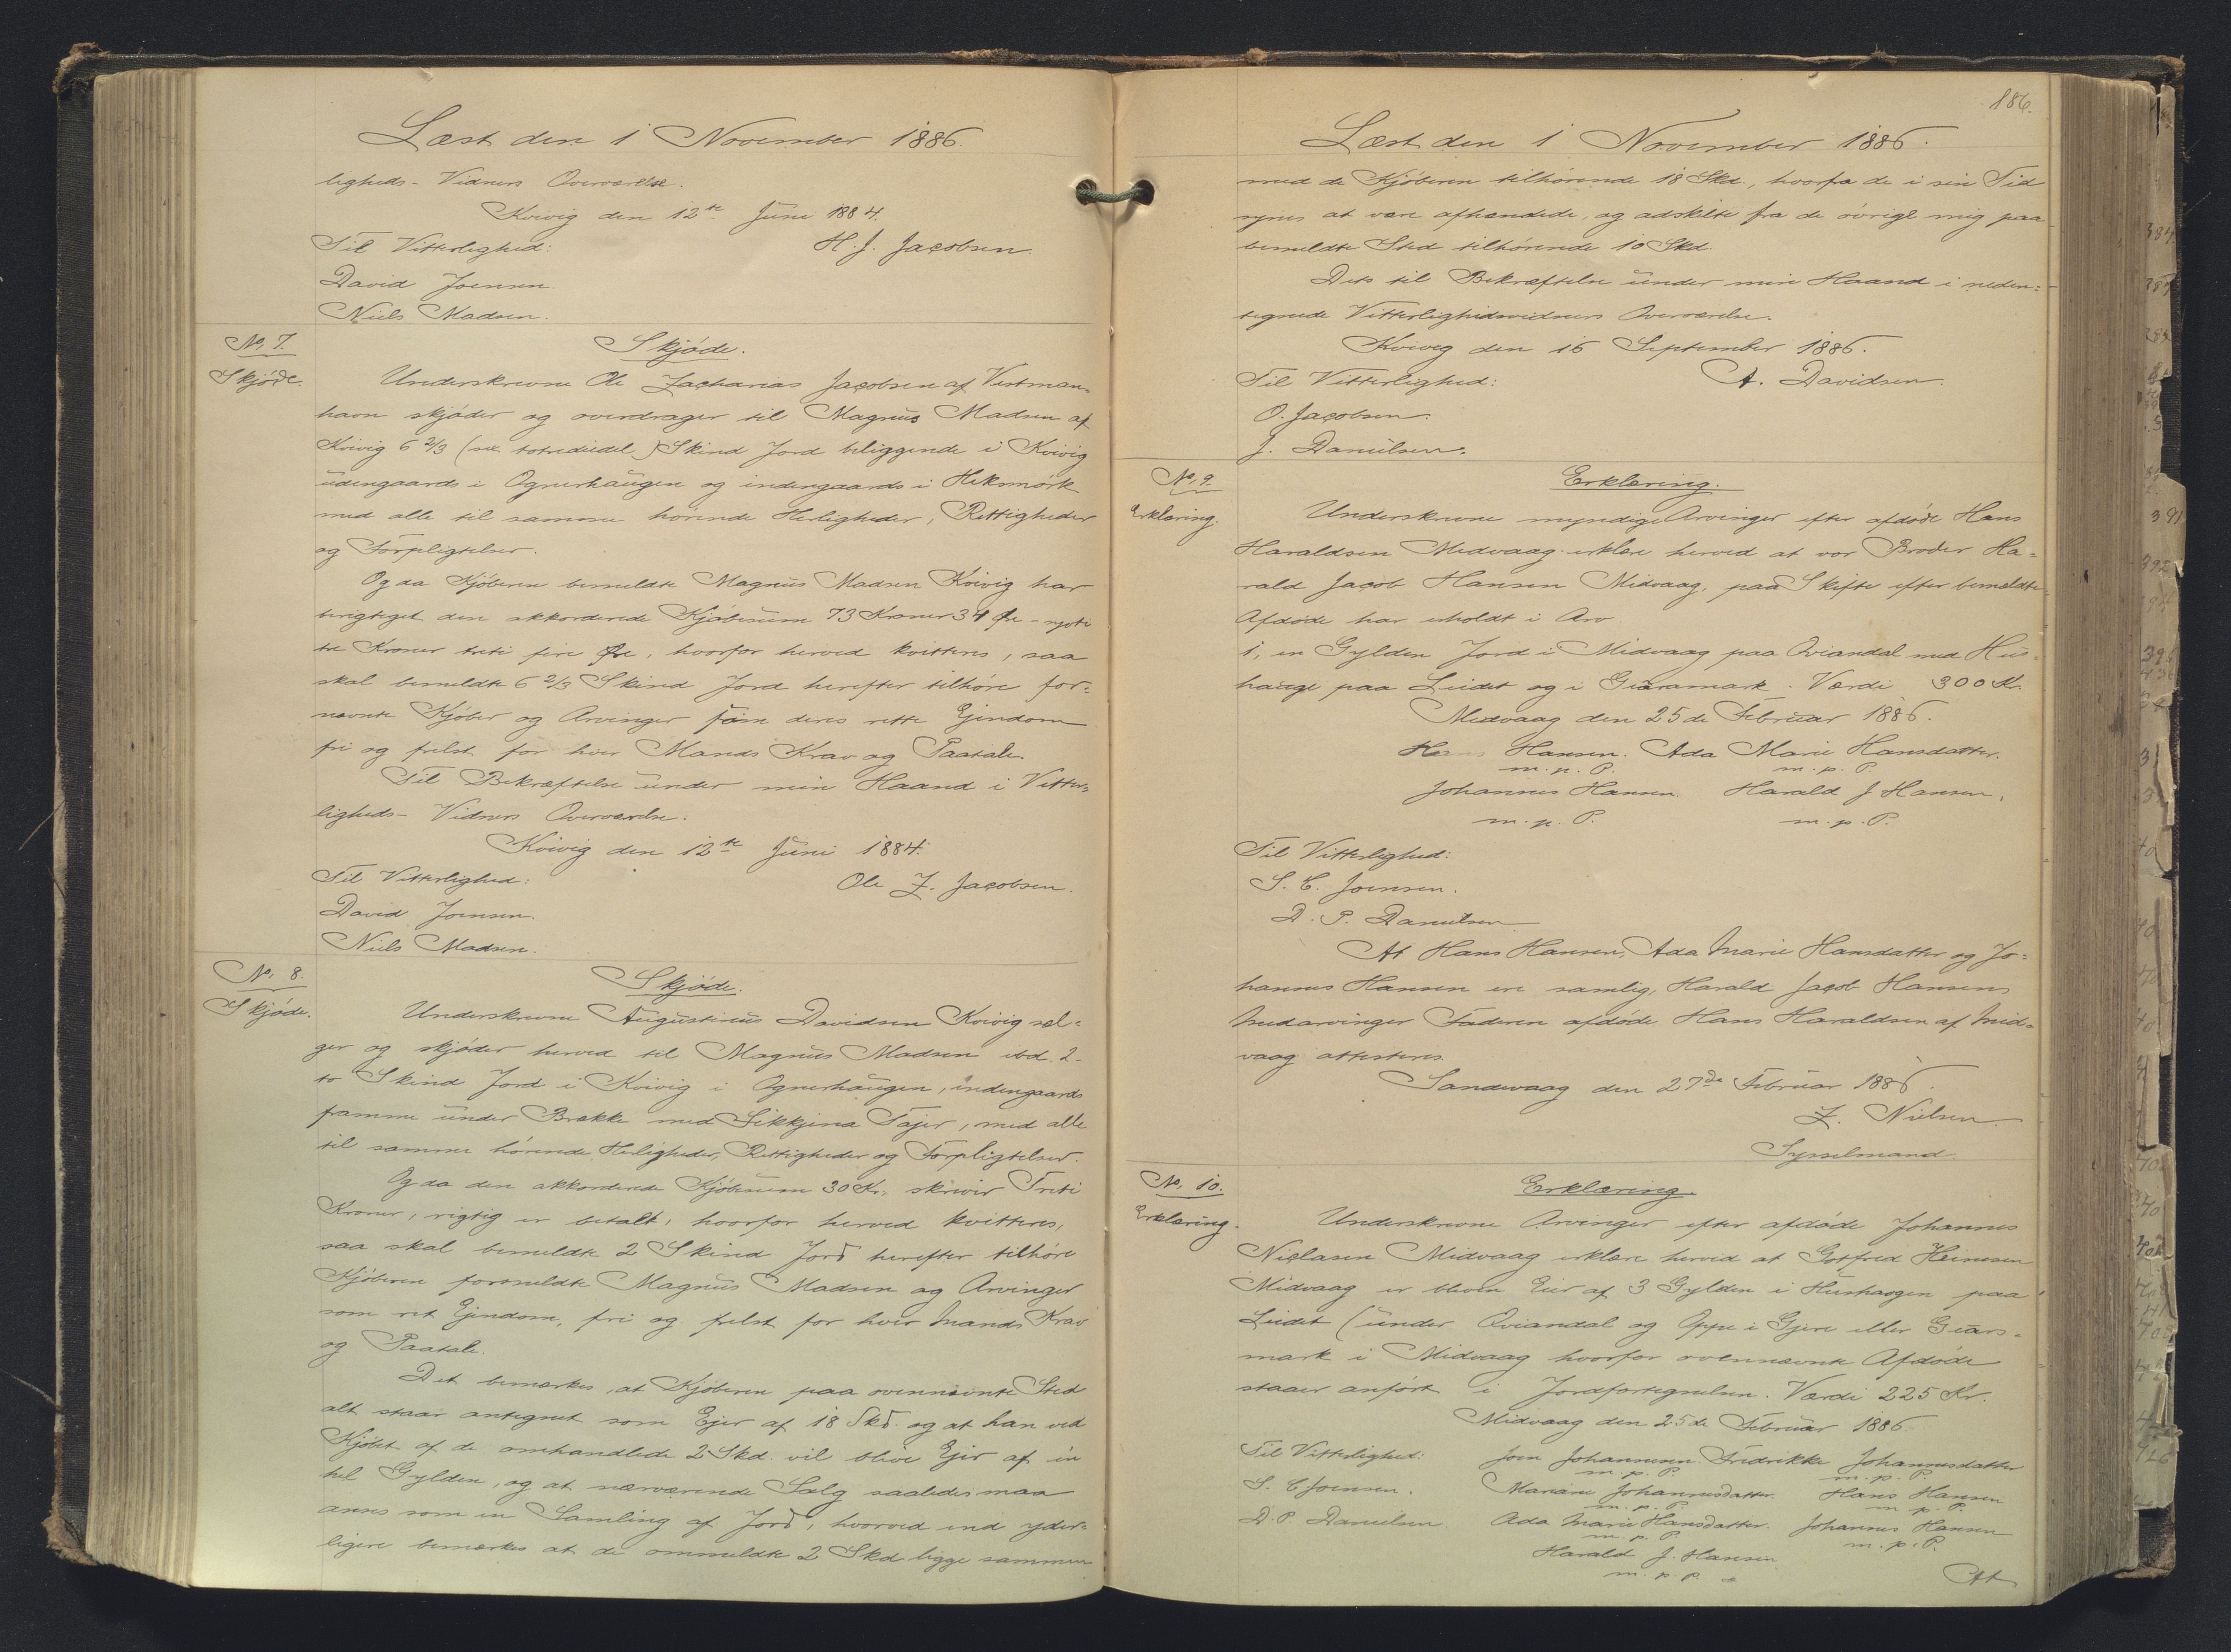 Læst den 1 November 1886.
ligheds-Vidners Overværelse.
Kvivig den 12te Juni 1884.
Til Vitterlighed: H. J. Jacobsen
David Joensen
Niels Madsen.
No, 7. Skjøde.
Skjøde. Underskrevne Ole Zacharias Jacobsen af Vestman-
havn skjøder og overdrager til Magnus Madsen af
Kvivig 6 2/3 (sex totrediedel) Skind Jord beliggende i Kvivig
udengaards i Ognerhaugen og indengaards i Heksmørk
med alle til samme hørende Herligheder, Rettigheder
og Forpligtelser.
Og da Kjøberen bemeldte Magnus Madsen Kvivig har
berigtiget den akkorderede Kjøbesum 73 Kroner 34 Øre - syvti
tre Kroner treti fire Øre, hvorfor herved kvitteres, saa
skal bemeldte 6 2/3 Skind Jord herefter tilhøre for-
nævnte Kjøber og Arvinger som deres rette Ejendom
fri og frelst for hver Mands Krav og Paatale.
Til Bekræftelse under min Haand i Vitter-
ligheds-Vidners Overværelse.
Kvivig den 12te Juni 1884.
Til Vitterlighed: Ole Z. Jacobsen.
David Joensen.
Niels Madsen.
No, 8. Skjøde.
Skjøde. Underskrevne Augustinus Davidsen Kvivig sæl-
ger og skjøder herved til Magnus Madsen ibd. 2-
to Skind Jord i Kvivig i Ognerhaugen, indengaards
framme under Brekke med Likkjena Tajer, med alle
til samme hørende Herligheder, Rettigheder og Forpligtelser.
Og da den akkorderede Kjøbesum 30 Kr. skriver Treti
Kroner, rigtig er betalt, hvorfor herved kvitteres,
saa skal bemeldte 2 Skind Jord herefter tilhøre
Kjøberen formeldte Magnus Madsen og Arvinger
som ret Ejendom, fri og frelst for hver Mands Krav
og Paatale.
Det bemærkes, at Kjøberen paa ovennævnte Sted
alt staar antegnet som Ejer af 18 Skd. og at han ved
Kjøbet af de omhandlede 2 Skd. vil blive Ejer af én
hel Gylden, og at nærværende Salg saaledes maa
anses som en Samling af Jord, hvorved end yder-
ligere bemærkes at de ommeldte 2 Skd ligge sammen
186.
Læst den 1 November 1886.
med de Kjøberen tilhørende 18 Skd., hvorfra de i sin Tid
synes at være afhændede, og adskilte fra de øvrige mig paa
bemeldte Sted tilhørende 10 Skd.
Dets til Bekræftelse under min Haand i neden-
tegnede Vitterlighedsvidners Overværelse.
Kvivig den 15 September 1886.
Til Vitterlighed: A. Davidsen.
O. Jacobsen.
J. Danielsen.
No, 9. Erklæring.
Erklæring. Underskrevne myndige Arvinger efter afdøde Hans
Haraldsen Midvaag erklære herved at vor Broder Ha-
rald Jacob Hansen Midvaag, paa Skifte efter bemeldte
Afdøde har erholdt i Arv
1, en Gylden Jord i Midvaag paa Qviandal med Hus-
hauge paa Leidet og i Giaramark. Værdi 300 Kr.
Midvaag den 25de Februar 1886.
Hans Hansen. Ada Marie Hansdatter.
m. p. P. m. p. P.
Johannes Hansen. Harald J Hansen,
m. p. P. m. p. P.
Til Vitterlighed:
S. C. Joensen.
D. P. Danielsen
At Hans Hansen, Ada Marie Hansdatter og Jo-
hannes Hansen ere samlig, Harald Jacob Hansens
Medarvinger Faderen afdøde Hans Haraldsen af Mid-
vaag attesteres
Sandevaag den 27de Februar 1886.
Z. Nielsen.
Sysselmand
No, 10. Erklæring.
Erklæring. Underskrevne Arvinger efter afdøde Johannes
Niclasen Midvaag erklære herved at Gotfred Heinesen
Midvaag er bleven Eier af 3 Gylden i Hushaugen paa
Leidet (under Qviandal og Oppe i Gjere eller Giars-
mark i Midvaag hvorfor ovennævnte Afdøde
staaer anført i Jordfortegnelsen. Værdi 225 Kr.
Midvaag den 25de Februar 1886.
Til Vitterlighed: Joen Johannesen Fredrikke Johannesdatter
m. p. P. m. p. P.
S. C Joensen. Mariane Johannesdatter. Hans Hansen
m. p. P. m. p. P.
D. P. Danielsen Ada Marie Hansdatter. Johannes Hansen
m. p. P. m. p. P.
Harald J. Hansen
m. p. P.
At